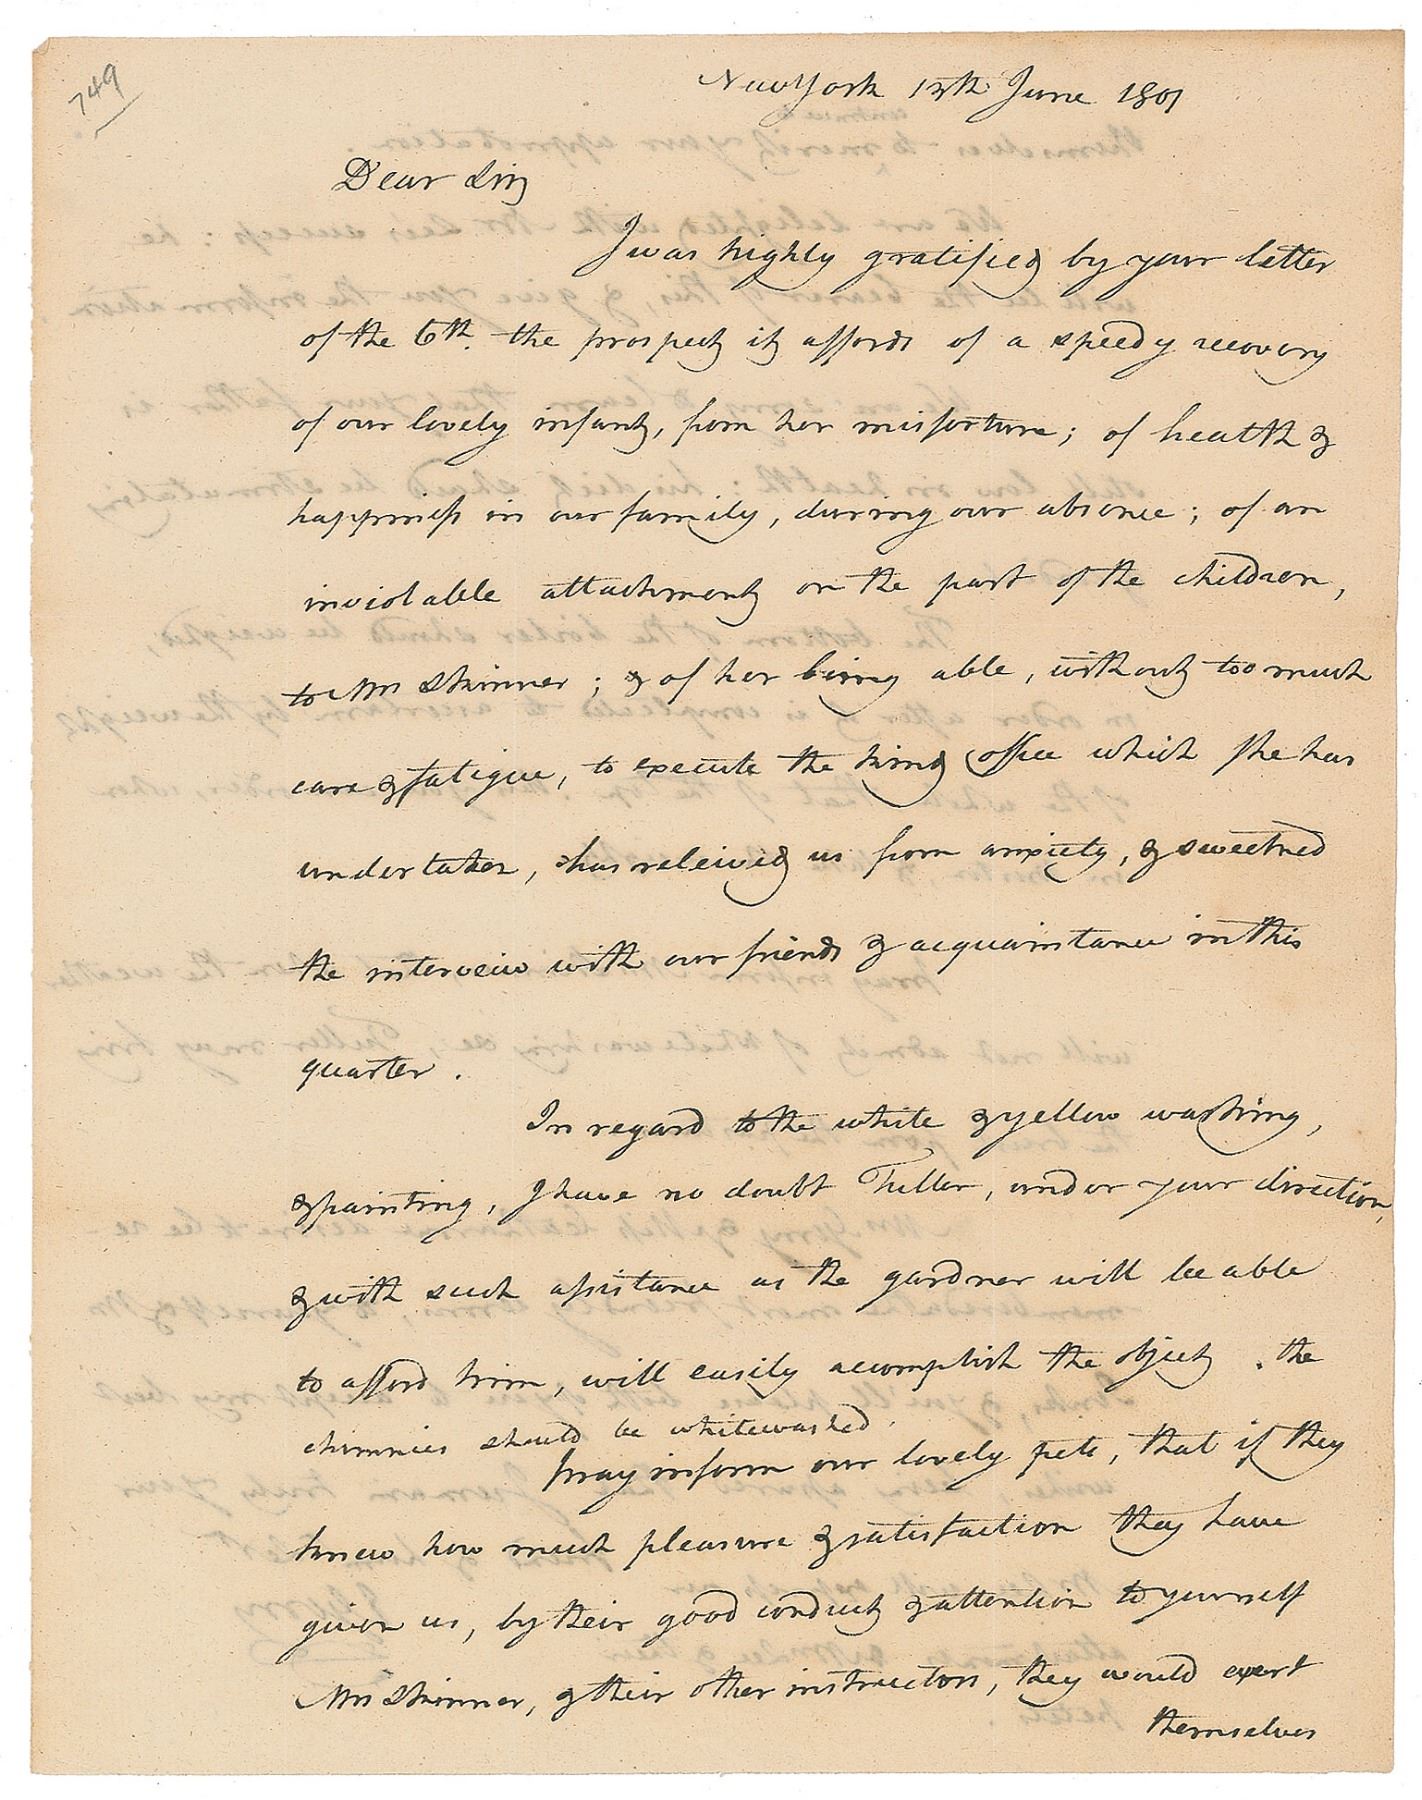 749
New York 13th June 1801
Dear Sir,
I was highly gratified by your letter
of the 6th. the prospect it affords of a speedy recovery
of our lovely infant, from her misfortune; of health &
happiness in our family, during our absence; of an
inviolable attachment on the part of the children,
to Mrs Skinner; & of her being able, without too much
care & fatigue, to execute the kind office which she has
undertaken, has releived us from anxiety, & sweetned
the interveiw with our friends & acquaintance in this
quarter.
In regard to the white & yellow washing,
& painting, I have no doubt Fuller, under your direction,
& with such assistance as the gardner will be able
to afford him, will easily accomplish the object. the
chimnies should be whitewashed.
pray inform our lovely pets, that if they
knew how much pleasure & satisfaction they have
given us, by their good conduct & attention to yourself
Mrs Skinner, & their other instructors, they would exert
themselves